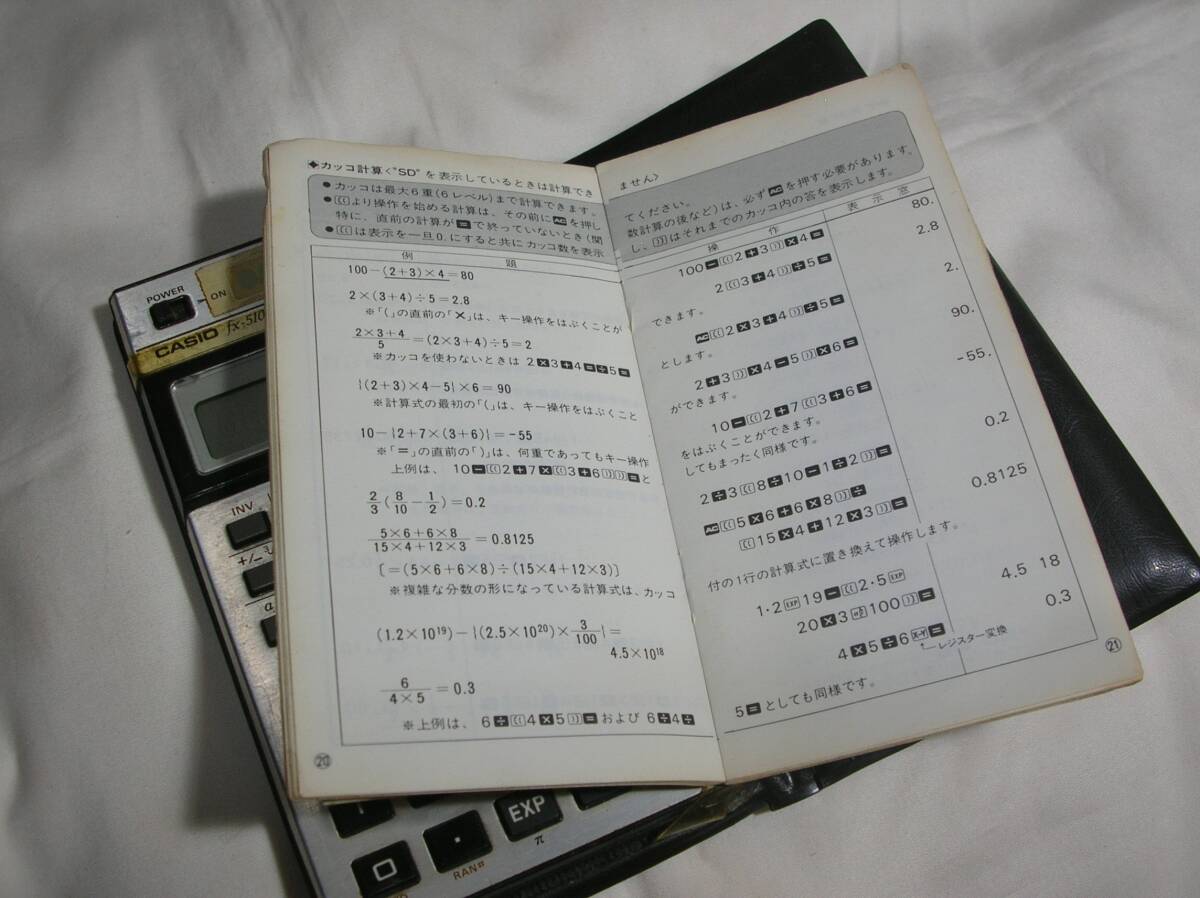 ◆カッコ計算〈"SD"を表示しているときは計算でき
●カッコは最大6重(6レベル)まで計算できます。
●[(…]より操作を始める計算は、その前にACを押し
特に、直前の計算が=で終っていないとき(関
●[(…]は表示を一旦0.にすると共にカッコ数を表示
例 題
100-(2+3)×4=80
2×(3+4)÷5=2.8
※「(」の直前の「×」は、キー操作をはぶくことが
2×3+4/5=(2×3+4)÷5=2
※カッコを使わないときは 2×3+4=÷5=
{(2+3)×4-5}×6=90
※計算式の最初の「(」は、キー操作をはぶくこと
10-{2+7×(3+6)}=-55
※「=」の直前の「)」は、何重であってもキー操作
上例は、 10-[(…]2+7×[(…]3+6[…)][…)]=と
2/3(8/10-1/2)=0.2
5×6+6×8/15×4+12×3=0.8125
〔=(5×6+6×8)÷(15×4+12×3)〕
※複雑な分数の形になっている計算式は、カッコ
(1.2×10¹⁹)-{(2.5×10²⁰)×3/100}=
4.5×10¹⁸
6/4×5=0.3
※上例は、 6÷[(…]4×5[…)]=および 6÷4÷
⑳
ません〉
てください。
数計算の後など)は、必ずACを押す必要があります。
し、[…)]はそれまでのカッコ内の答を表示します。
操 作 表 示 窓
100-[(…]2+3[…)]×4= 80.
2[(…]3+4[…)]÷5= 2.8
できます。
AC[(…]2×3+4[…)]÷5= 2.
とします。
2+3[…)]×4-5[…)]×6= 90.
ができます。
10-[(…]2+7[(…]3+6= -55.
をはぶくことができます。
してもまったく同様です。
2÷3[(…]8÷10-1÷2[…)]= 0.2
AC[(…]5×6+6×8[…)]÷
[(…]15×4+12×3[…)]= 0.8125
付の1行の計算式に置き換えて操作します。
1・2EXP19-[(…]2・5EXP
20×3÷100[…)]= 4.5 18
4×5÷6X-Y= 0.3
レジスター変換
5=としても同様です。
㉑
POWER
ON
CASIO fx-510
INV
+/-
EXP
π
0
・
RAN#